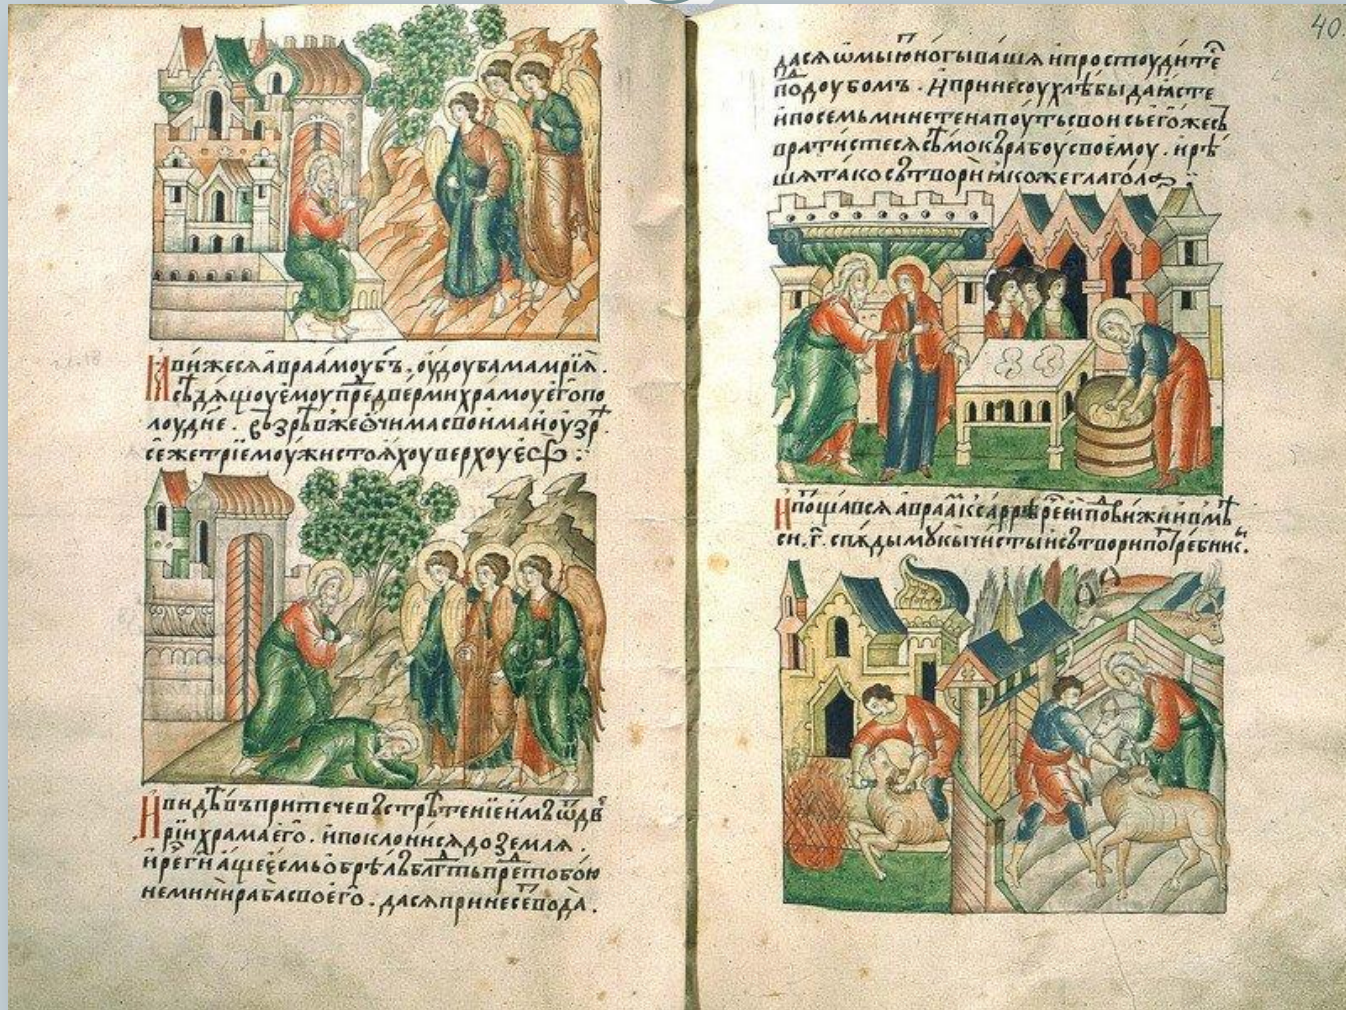 И вижеся авраамоу бъ . оу доуба мамрїꙗ .
сѣдѧщоу емоу предверми храмоу его по
лоудне . возрѣв же очима своима и оузр
се же трїе моужи стоѧхоу верхоу
И видѣвъ притече въ стрѣтенїе имъ ѿ дв
рїи храма его . и поклонисѧ до землѧ .
и ре ги аще есмь обрѣлъ блгть пре тобою
не мини раба своего . да сѧ принесе вода .
40.
да сѧ омыю ногы вашѧ и простоудите
под доубомъ . И принесоу хлѣбы да ꙗсте
и по семь минете на поуть свои его же
вратистесѧ сѣмо къ рабоу своемоу . и рѣ
шѧ тако сътвори ꙗко же глагола
И авраа к сарр рѣ еи и
си . г . мукы чисты и сътвори